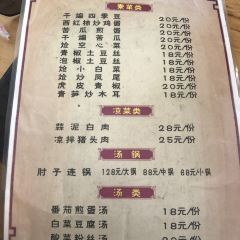 素菜类
干煸四季豆 20元/份
西红柿炒鸡蛋 20元/份
苦瓜煎蛋 20元/份
干煸苦瓜 20元/份
烩空心菜 20元/份
青椒土豆丝 18元/份
泡椒土豆丝 18元/份
烩小白菜 18元/份
炝炒凤尾 18元/份
虎皮青椒 20元/份
青笋炒木耳 18元/份
凉菜类
蒜泥白肉 25元/份
凉拌猪头肉 25元/份
汤锅
肘子连锅 128元/大锅 88元/中锅 68元/小锅
汤类
番茄煎蛋汤 18元/份
白菜豆腐汤 18元/份
酸菜粉丝汤